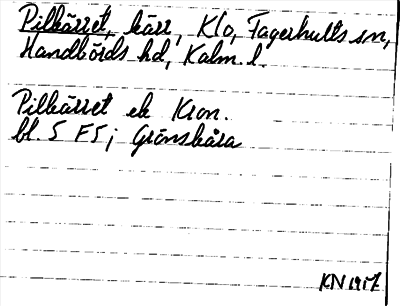 Pilkärret, kärr, Klo, Fagerhults sn,
Handbörds hd, Kalm. l.
Pilkärret ek Kron.
bl. 5 F5; Grönskåra
KN 1917